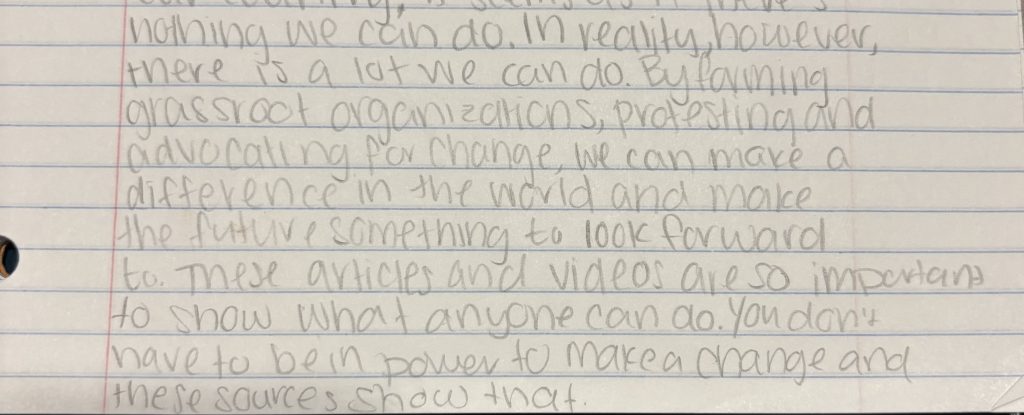 nothing we can do. In reality, however,
there is a lot we can do. By forming
grassroot organizations, protesting and
advocating for change, we can make a
difference in the world and make
the future something to look forward
to. These articles and videos are so important
to show what anyone can do. You don't
have to be in power to make a change and
these sources show that.